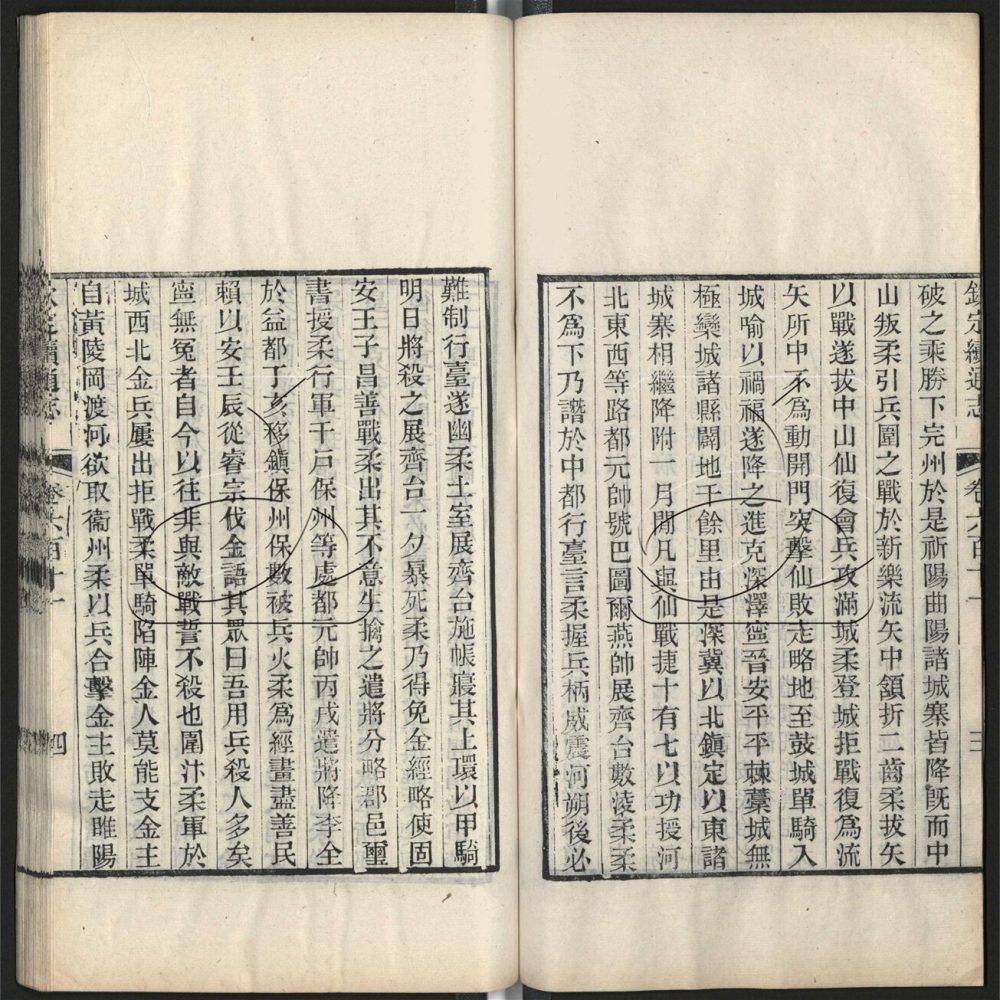 欽定續通志 卷六百十一 三
破之乘勝下完州於是祈陽曲陽諸城寨皆降旣而中
山叛柔引兵圍之戰於新樂流矢中頷折二齒柔拔矢
以戰遂拔中山仙復會兵攻滿城柔登城拒戰復爲流
矢所中不爲動開門突擊仙敗走略地至鼓城單騎入
城喻以禍福遂降之進克深澤寧晉安平平棘藁城無
極欒城諸縣闢地千餘里由是深冀以北鎭定以東諸
城寨相繼降附一月閒凡與仙戰捷十有七以功授河
北東西等路都元帥號巴圖爾燕帥展齊台數淩柔柔
不爲下乃譖於中都行臺言柔握兵柄威震河朔後必
難制行臺遂幽柔土室展齊台施帳寢其上環以甲騎
明日將殺之展齊台一夕暴死柔乃得免金經略使固
安王子昌善戰柔出其不意生擒之遣將分略郡邑璽
書授柔行軍千戸保州等處都元帥丙戌遣將降李全
於益都丁亥移鎭保州保數被兵火柔爲經畫盡善民
賴以安壬辰從睿宗伐金語其眾曰吾用兵殺人多矣
寧無冤者自今以往非與敵戰誓不殺也圍汴柔軍於
城西北金兵屢出拒戰柔單騎陷陣金人莫能支金主
自黃陵岡渡河欲取衞州柔以兵合擊金主敗走睢陽
欽定續通志 卷六百十一 四